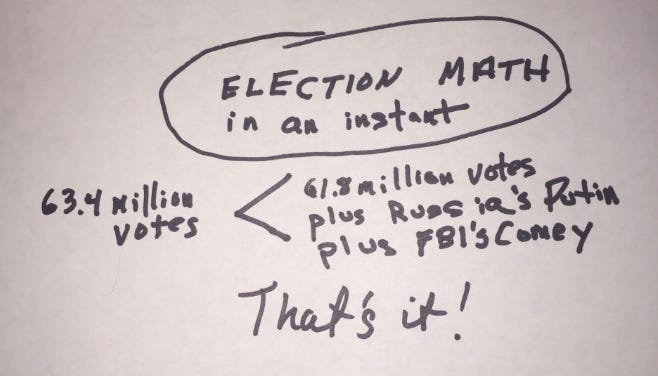 ELECTION MATH
in an instant
63.4 Million
votes
<
61.8 million votes
plus Russia's Putin
plus FBI's Comey
That's it!